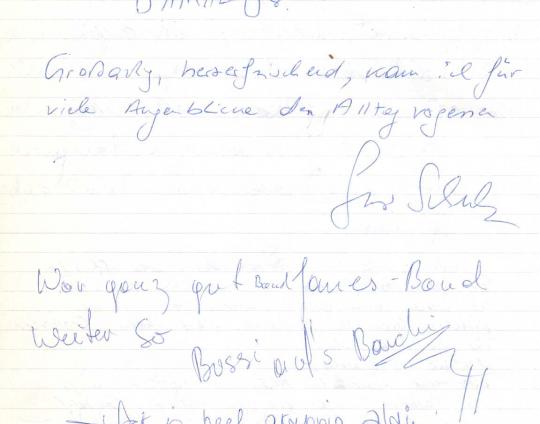 Großartig, herzerfrischend, kann ich für
viele Augenblicke den Alltag vergessen
Schulz
War ganz gut Band James-Bond
weiter so
Bussi auf's Bauchi